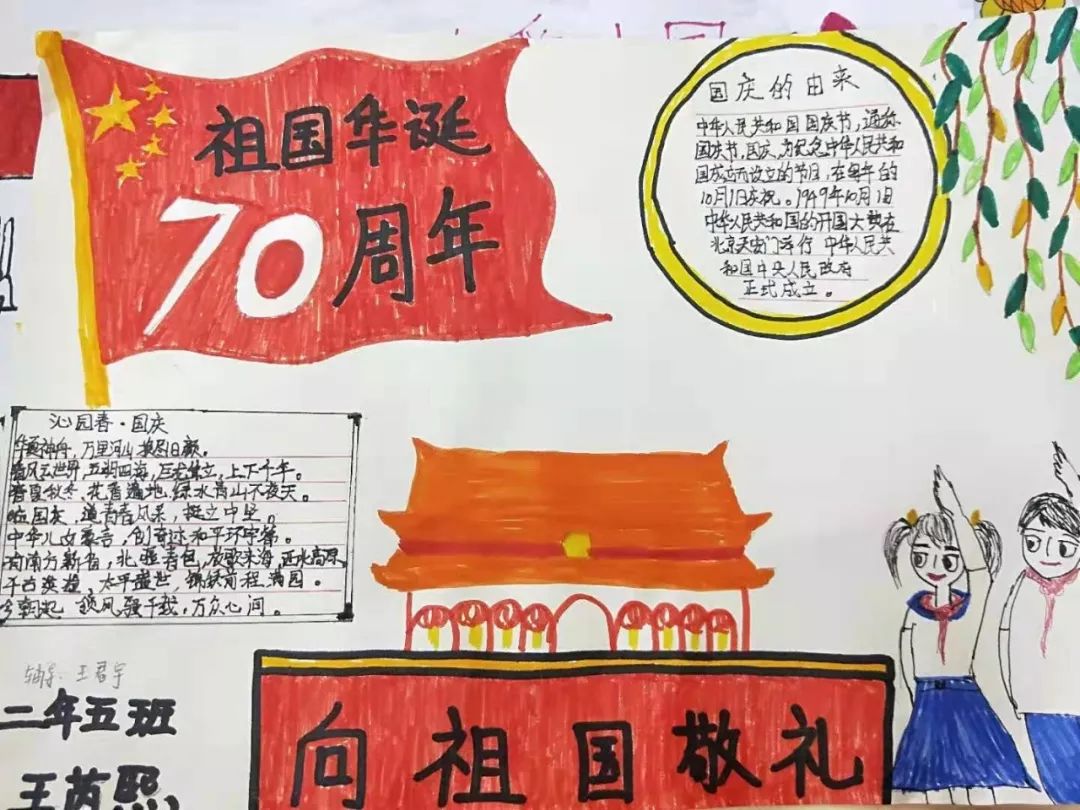 祖国华诞
70周年
国庆的由来
中华人民共和国国庆节,通称
国庆节,国庆,为纪念中华人民共和
国成立而设立的节日,在每年的
10月1日庆祝。1949年10月1日
中华人民共和国的开国大典在
北京天安门举行 中华人民共
和国中央人民政府
正式成立。
沁园春·国庆
华夏神舟,万里河山,换图日颜。
风云世界,五湖四海,巨龙傲立,上下千年。
春夏秋冬,花香遍地,绿水青山不夜天。
国庆,道青春风采,挺立中坚。
中华儿女豪言,创奇迹和平环宇
南方新
千古英雄,太平盛世,锦绣前程满园。
朝起 领风骚千载,万众心间。
辅导:王君宇
二年五班
王芮熙
向祖国敬礼